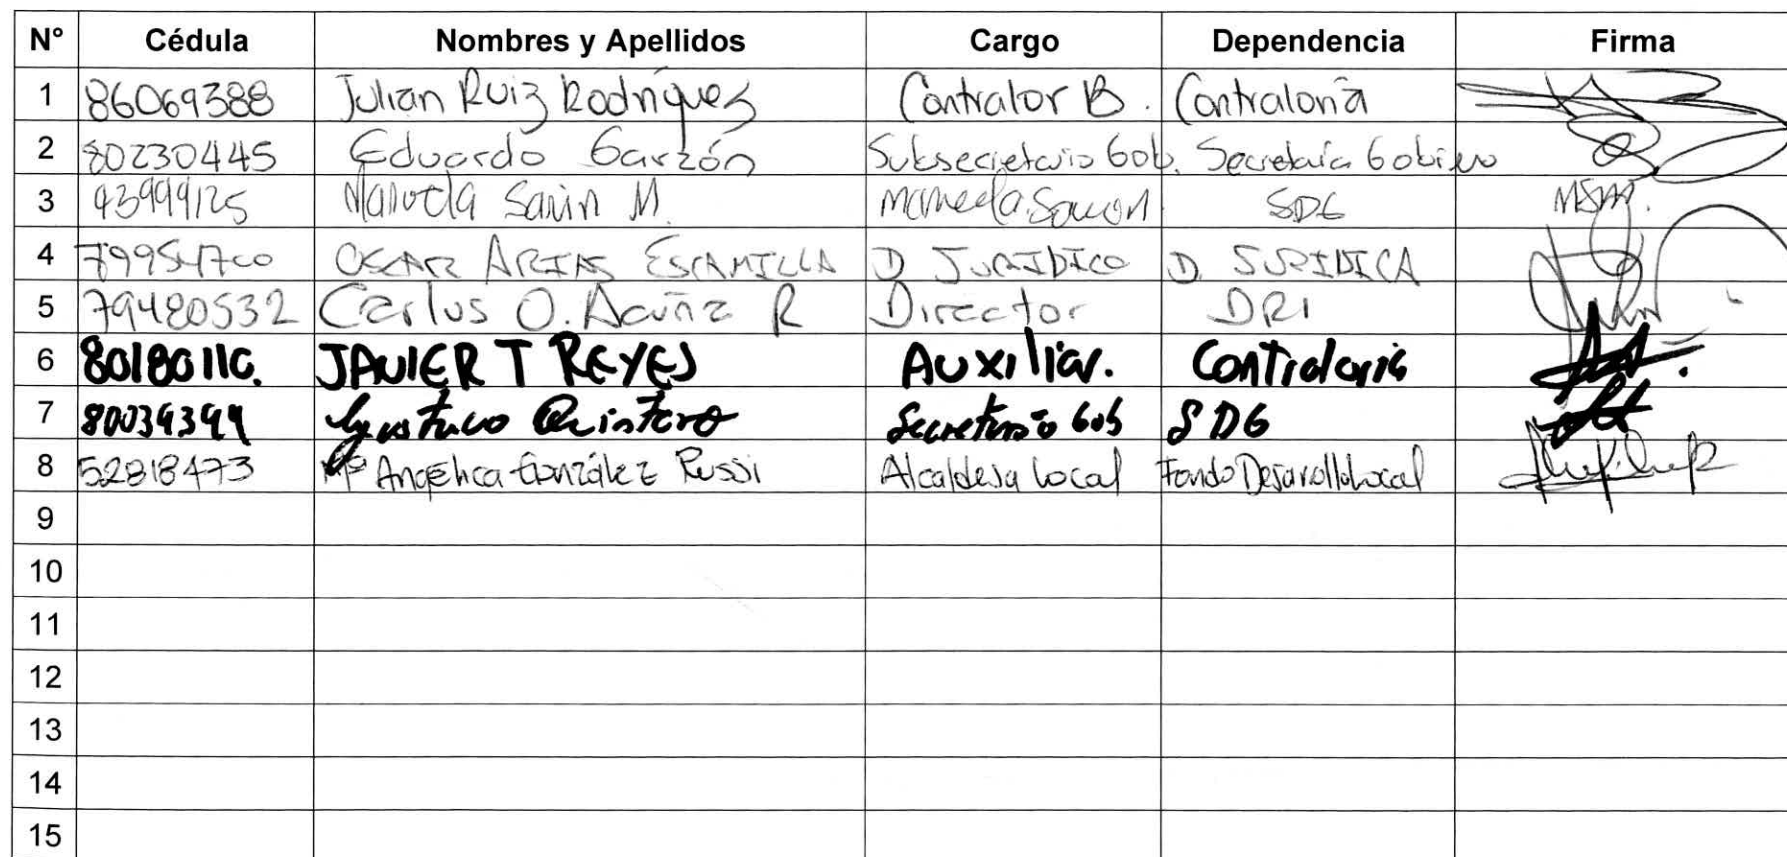 N° Cédula Nombres y Apellidos Cargo Dependencia Firma
1 86069388 Julian Ruiz Rodríguez Contralor B. Contraloría
2 80230445 Eduardo Garzón Subsecretario Gob. Secretaría Gobierno
3 43999125 Manuela Sarin M. SDG MSM.
4 OSCAR ARIAS ESCAMILLA D JURIDICO D. JURIDICA
5 79480532 Carlos O. Acuña R Director DRI
6 JAVIER T REYES Auxiliar. Contraloria
7 Gustavo Quintero Secretario Gob SDG
8 52818473 Mª Angélica González Russi Alcaldesa Local Fondo Desarrollo Local
9
10
11
12
13
14
15